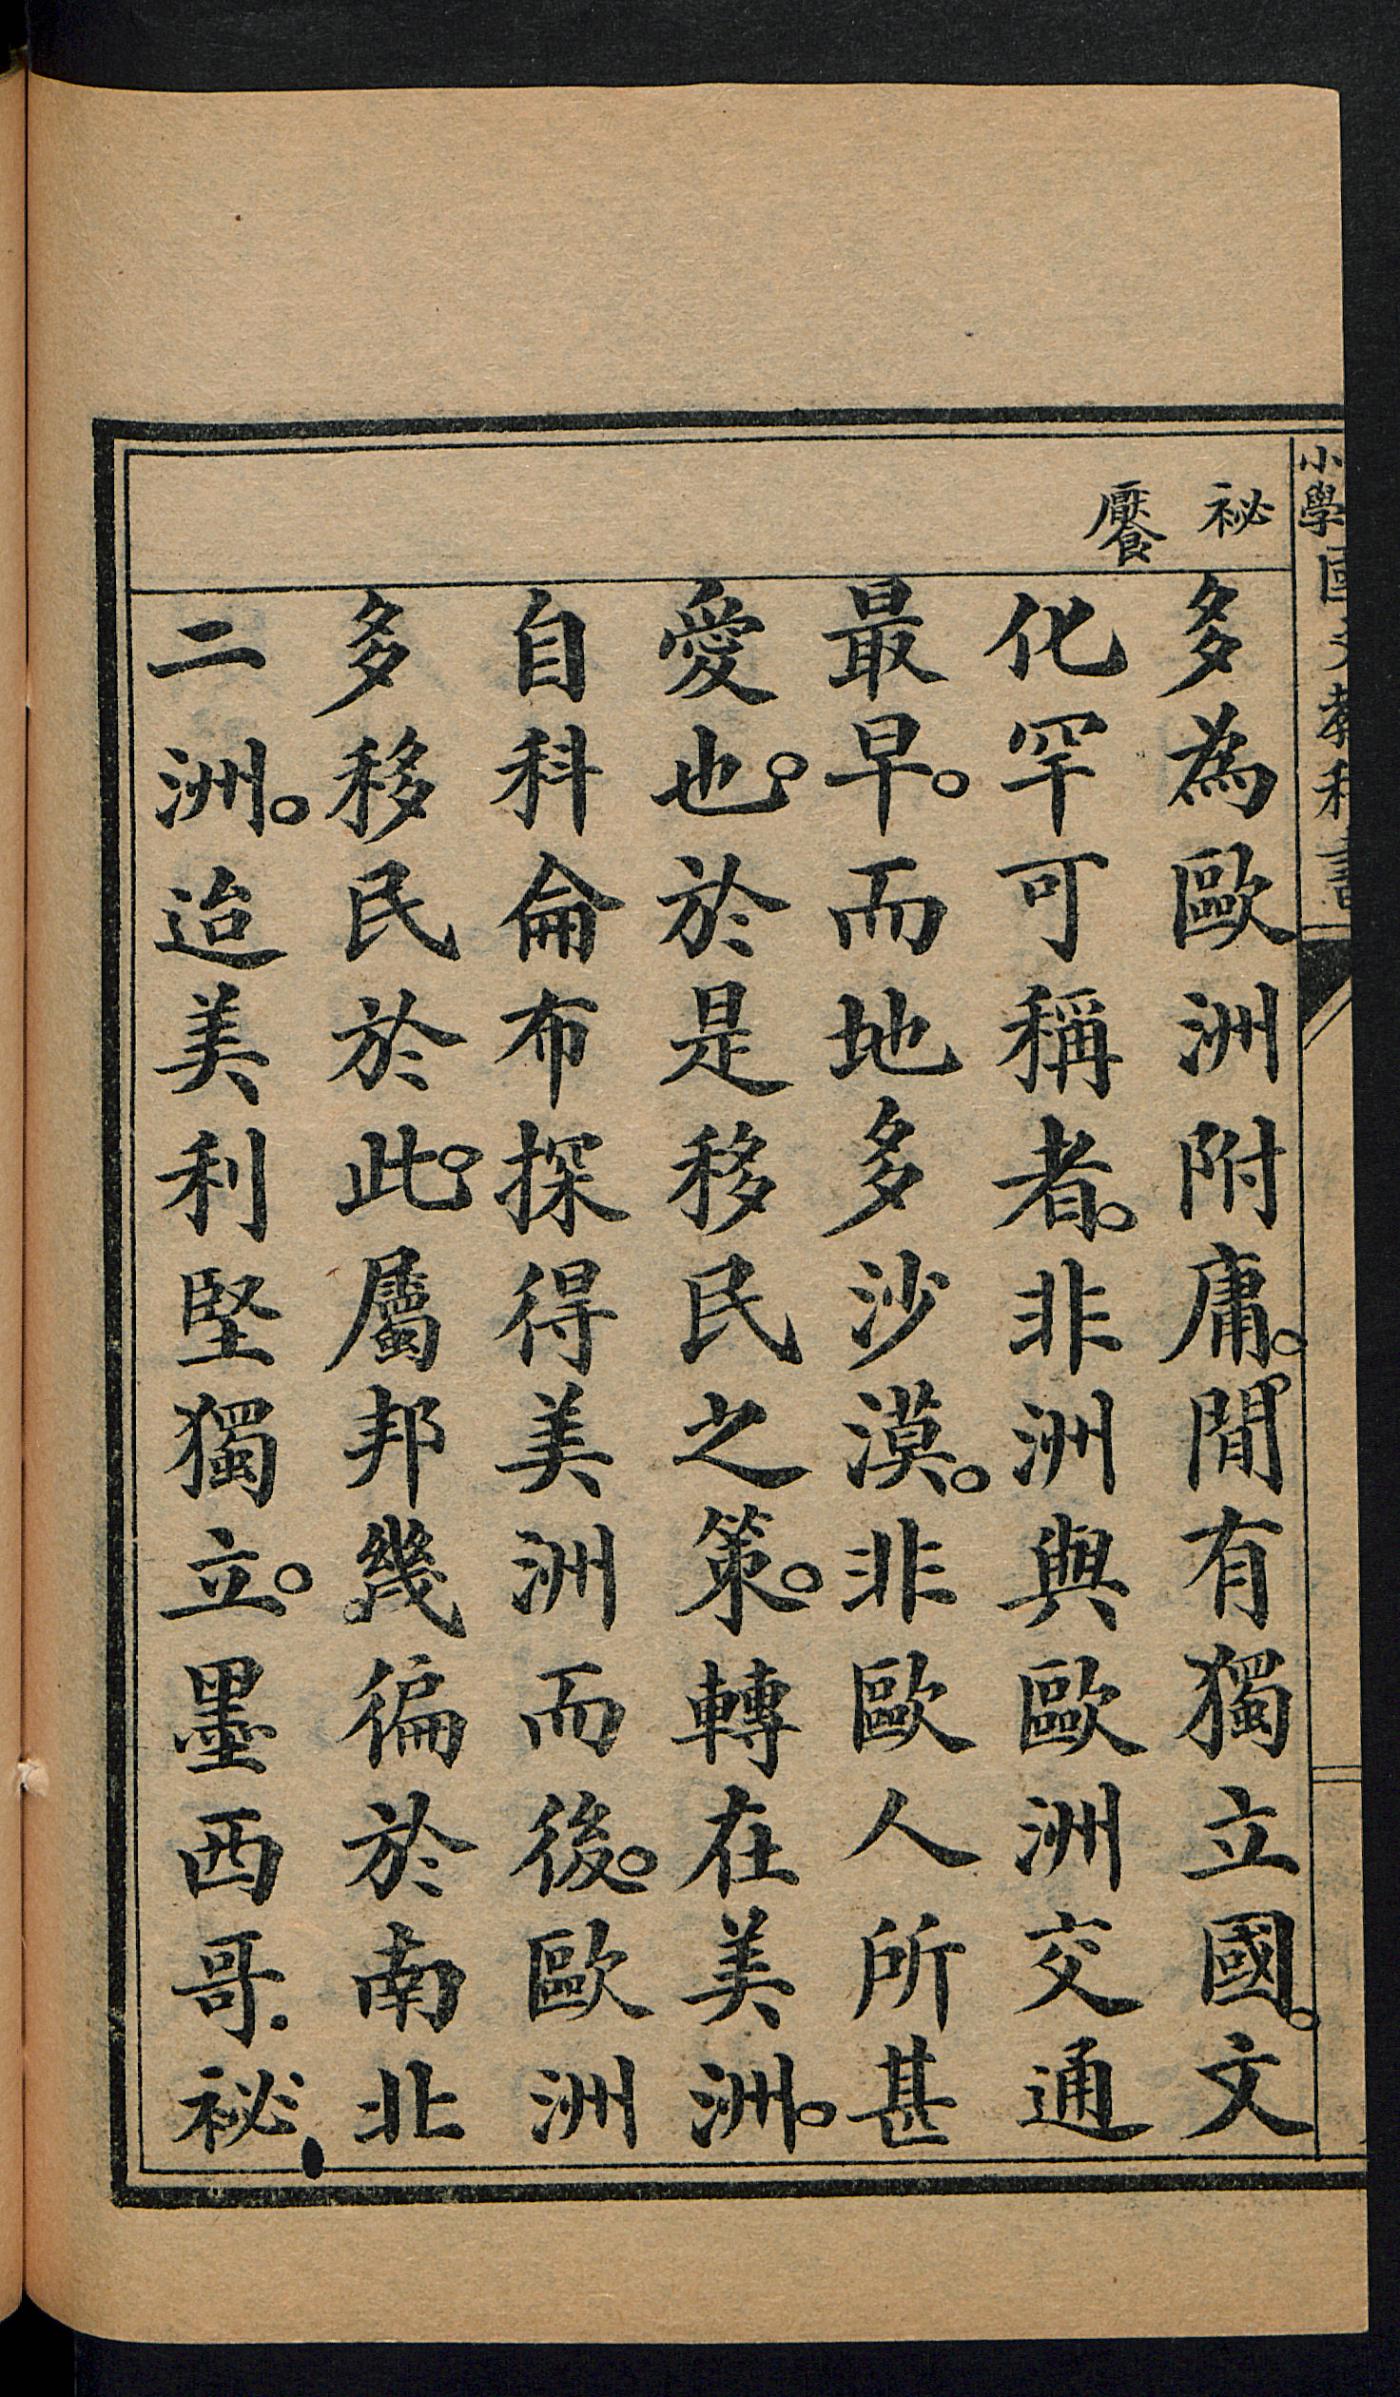 小學國文教科書
祕
饜
多為歐洲附庸。閒有獨立國。文
化罕可稱者。非洲與歐洲交通
最早。而地多沙漠。非歐人所甚
愛也。於是移民之策。轉在美洲。
自科侖布探得美洲而後。歐洲
多移民於此。屬邦幾徧於南北
二洲。迨美利堅獨立。墨西哥.祕